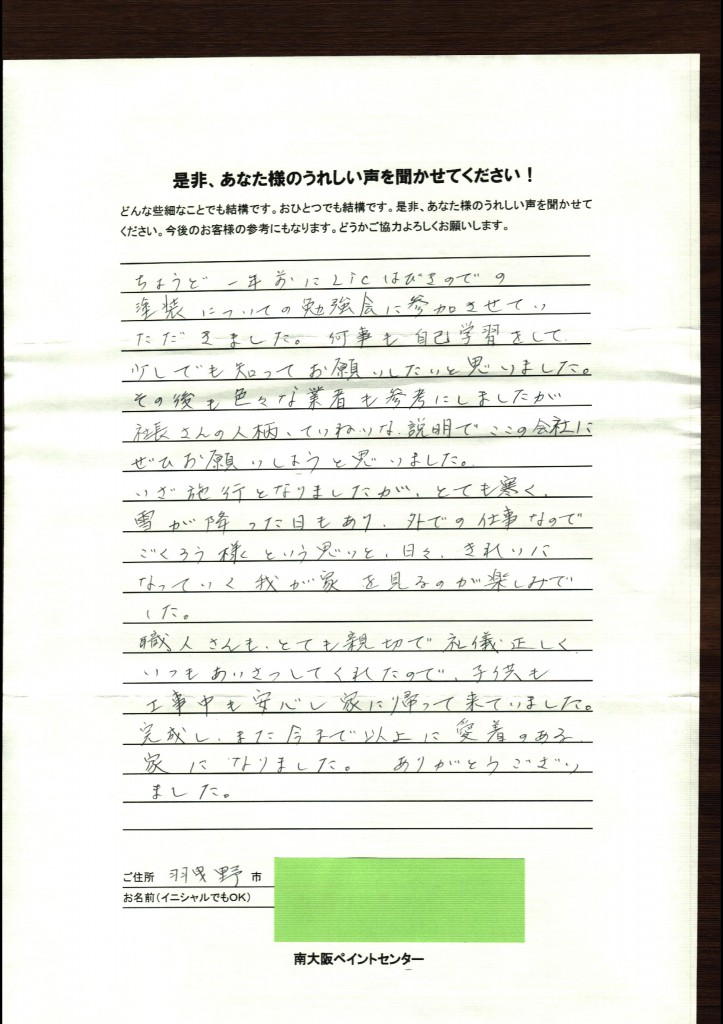 是非、あなた様のうれしい声を聞かせてください！
どんな些細なことでも結構です。おひとつでも結構です。是非、あなた様のうれしい声を聞かせて
ください。今後のお客様の参考にもなります。どうかご協力よろしくお願いします。
ちょうど一年前にLicはびきのでの
塗装についての勉強会に参加させてい
ただきました。何事も自己学習をして
少しでも知ってお願いしたいと思いました。
その後も色々な業者も参考にしましたが
社長さんの人柄、ていねいな説明でここの会社に
ぜひお願いしようと思いました。
いざ施行となりましたが、とても寒く、
雪が降った日もあり、外での仕事なので
ごくろう様という思いと、日々、きれいに
なっていく我が家を見るのが楽しみで
した。
職人さんも、とても親切で礼儀正しく
いつもあいさつしてくれたので、子供も
工事中も安心し家に帰って来ていました。
完成し、また今まで以上に愛着のある
家になりました。ありがとうござい
ました。
ご住所 羽曳野市
お名前（イニシャルでもOK）
南大阪ペイントセンター